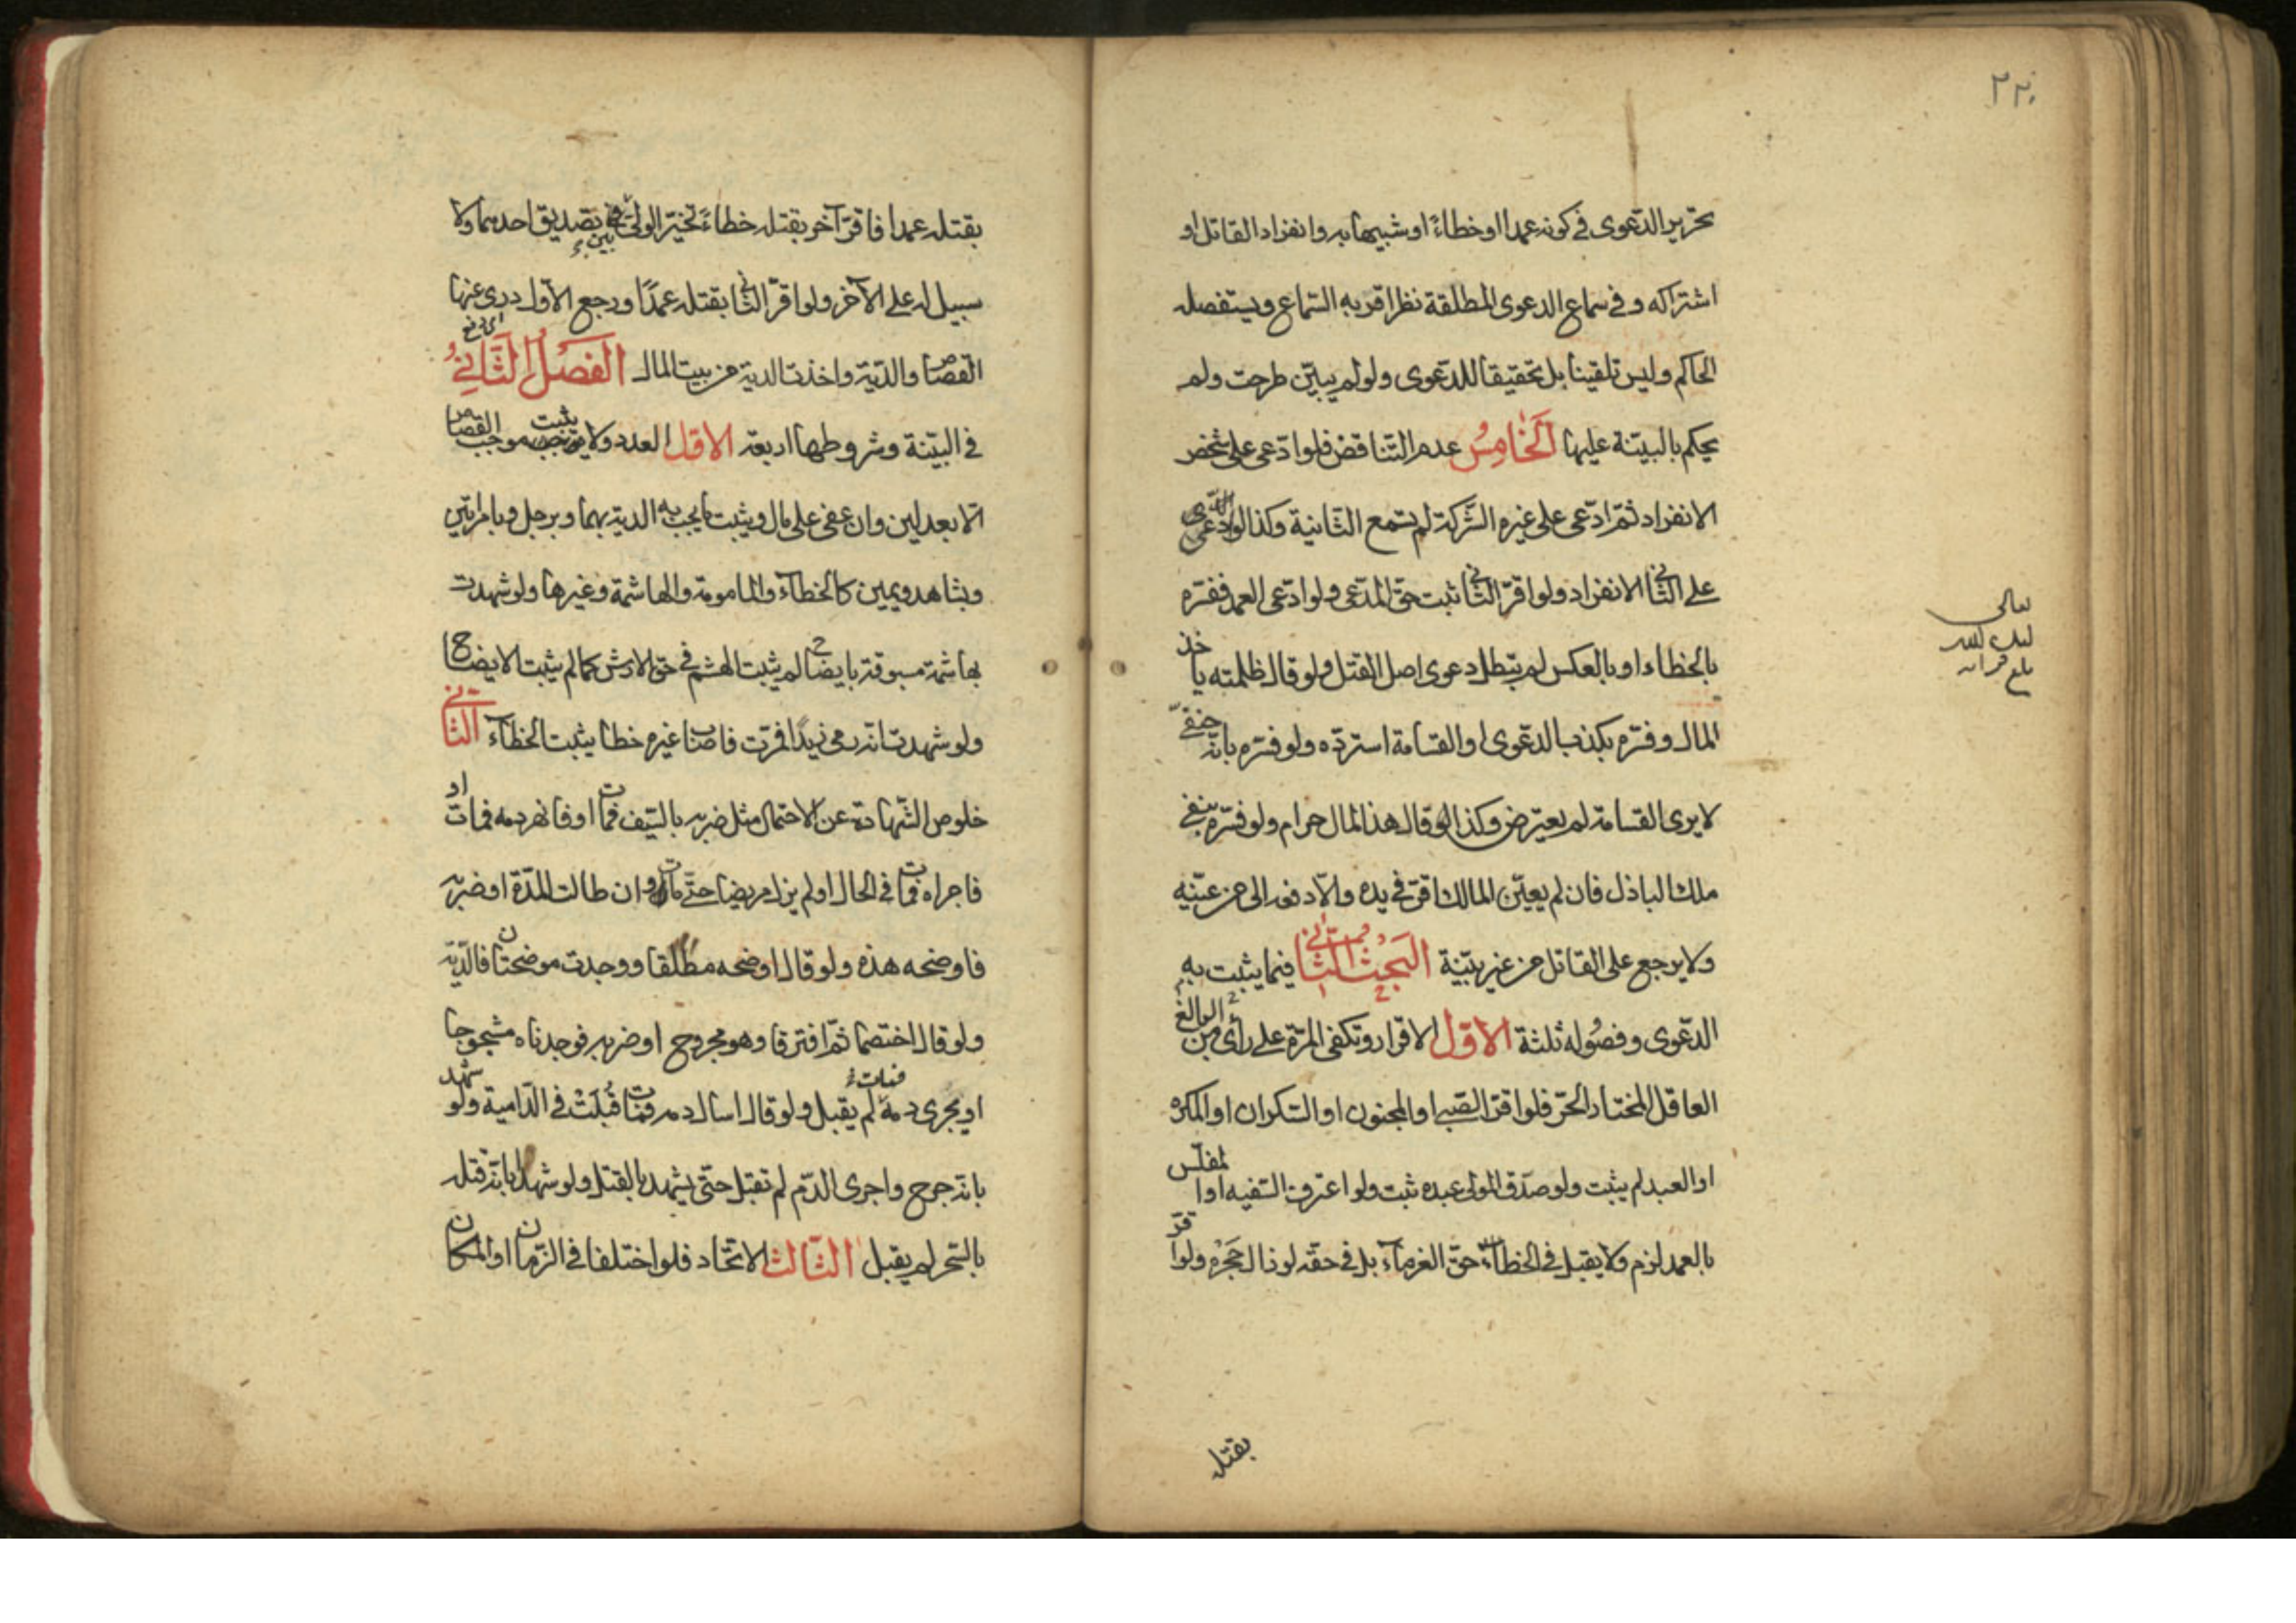 ٢٢٠
تحرير الدّعوى في كونه عمدا او خطاءً او شبيها به وانفراد القاتل او
اشتراكه وفي سماع الدعوى المطلقة نظر اقربه السّماع ويستفصله
الحاكم وليس تلقينا بل تحقيقا للدّعوى ولو لم يبيّن طرحت ولم
يحكم بالبيّنة عليها الخامس عدم التّناقض فلو ادّعى على شخص
الانفراد ثمّ ادّعى على غيره الشّركة لم تسمع الثّانية وكذا لو ادّعى
على الثّاني الانفراد ولو اقرّ الثّاني ثبت حقّ المدّعي ولو ادّعى العمد ففسّره
بالخطاء او بالعكس لم يبطل دعوى اصل القتل ولو قال ظلمته يا خذ
المال وفسّره بكذب الدّعوى او القسامة استردّه ولو فسّره بانّه حنفيّ
لا يرى القسامة لم يعترض وكذا لو قال هذا المال حرام ولو فسّره بنفي
ملك الباذل فان لم يعيّن المالك اقرّ في يده والّا دفعه الى من عيّنه
ولا يرجع على القاتل من غير بيّنة البحث الثّاني فيما يثبت به
الدّعوى وفصوله ثلثة الاوّل الاقرار وتكفي المرّة على رأي من البالغ
العاقل المختار الحرّ فلو اقرّ الصّبي او المجنون او السّكران او المكره
او العبد لم يثبت ولو صدّق المولى عبده ثبت ولو اعترف السّفيه او المفلّس
بالعمد لزم ولا يقبل في الخطاء حقّ الغرماء بل في حقّه لو زال حجره ولو اقرّ
بقتل
بقتله عمدا فاقرّ آخر بقتله خطاءً تخيّر الوليّ في تصديق احدهما ولا
سبيل له على الآخر ولو اقرّ الثّاني بقتله عمدًا ورجع الاوّل درئ عنهما
القصاص والدّية واخذت الدية من بيت المال الفصل الثّاني
في البيّنة وشروطها اربعة الاوّل العدد ولا يثبت موجب القصاص
الّا بعدلين وان عفى على مال ويثبت ما يجب به الدية بهما وبرجل وبامراتين
وبشاهد ويمين كالخطاء والمامومة والهاشمة وغيرها ولو شهدت
بهاشمة مسبوقة بايضاح لم يثبت الهشم في حق الارش كما لم يثبت الايضاح
ولو شهدت انّه رمى زيدًا فمرّت فاصاب غيره خطا يثبت الخطاء الثّاني
خلوص الشّهادة عن الاحتمال مثل ضربه بالسّيف فمات او فانهر دمه فمات او
فاجراه فمات في الحال او لم يزل مريضا حتّى مات وان طالت المدّة او ضربه
فاوضحه هذه ولو قال اوضحه مطلقا ووجدت موضحتان فالدّية
ولو قال اختصما ثمّ افترقا وهو مجروح او ضربه فوجدناه مشجوجا
او يجرى دمه لم يقبل ولو قال اسال دمه فمات قُبلت في الدّامية ولو شهد
بانّه جرح واجرى الدّم لم تقبل حتّى يشهد بالقتل ولو شهدا بانّه قتله
بالسّحر لم يقبل الثّالث الاتّحاد فلو اختلفا في الزّمان او المكان